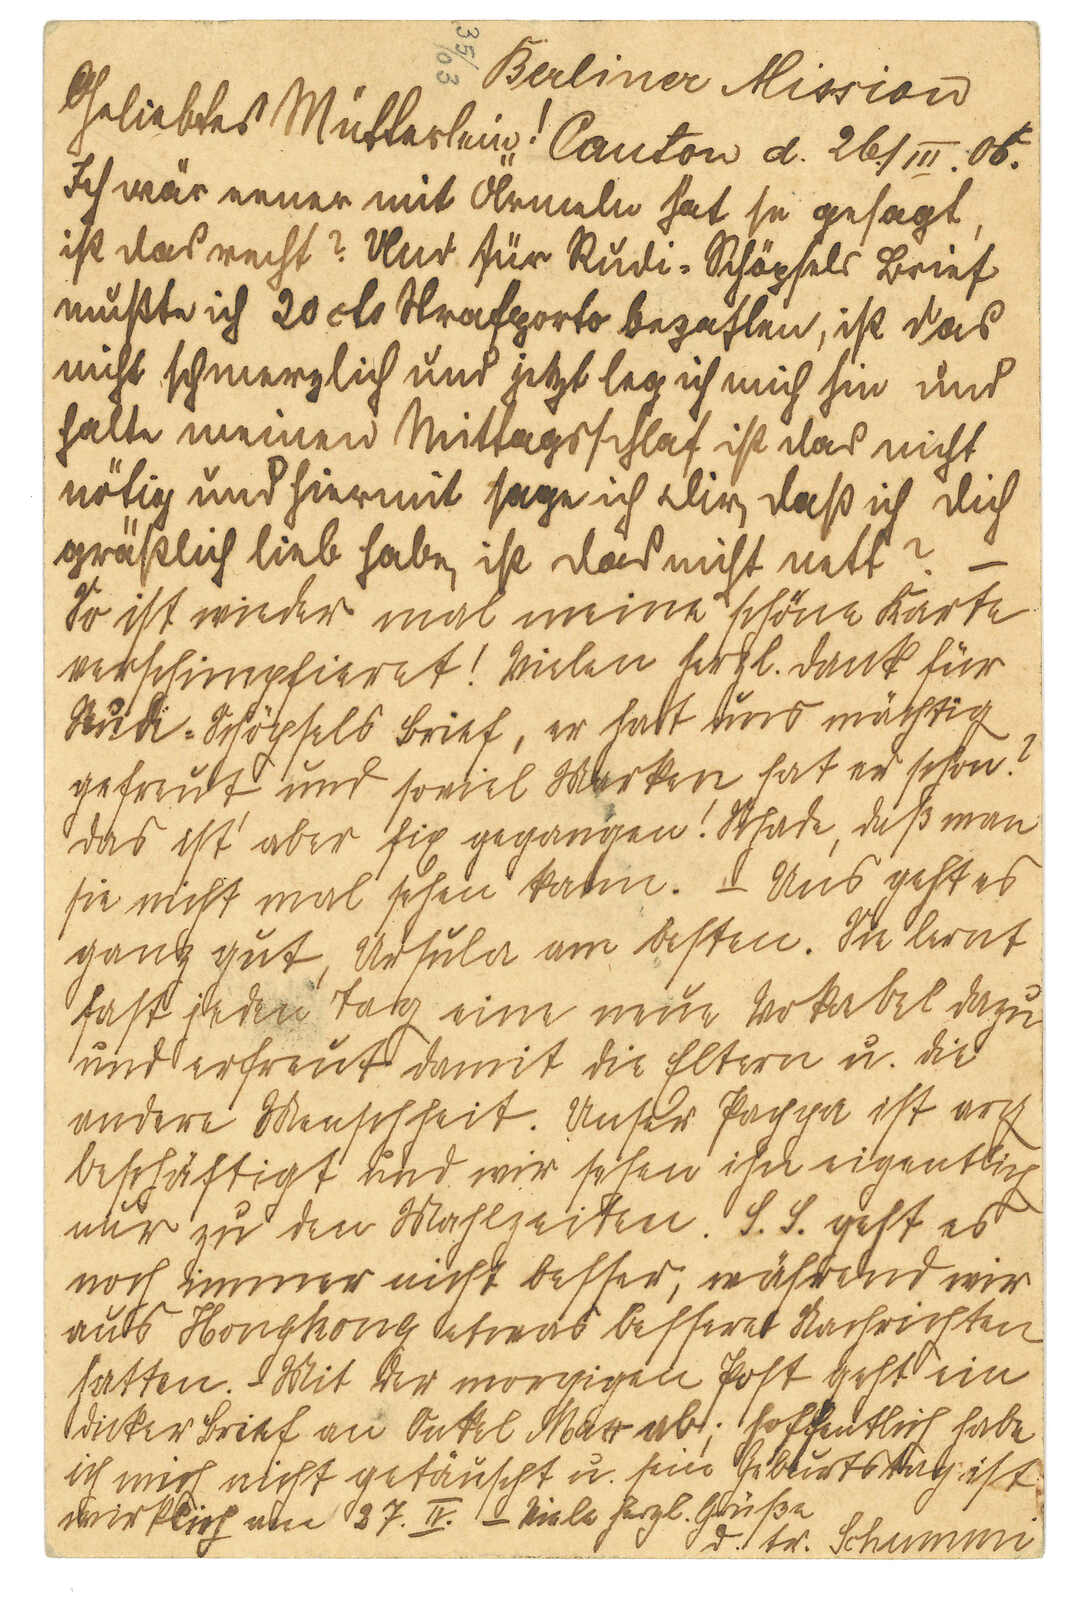 35/03
Berliner Mission
Geliebtes Mütterlein! Canton d. 26/III. 06.
Ich wär eener mit Ärmeln hat se gesagt,
ist das recht? Und für Rudi-Schöpfels Brief
mußte ich 20 cts Strafporto bezahlen, ist das
nicht schmerzlich und jetzt leg ich mich hin und
halte meinen Mittagsschlaf ist das nicht
nötig und hiermit sage ich Dir, daß ich Dich
gräßlich lieb habe, ist das nicht nett? —
So ist wieder mal meine schöne Karte
verschimpfieret! Vielen herzl. Dank für
Rudi-Schöpfels Brief, er hat uns mächtig
gefreut und soviel Marken hat er schon?
das ist aber fix gegangen! Schade, daß man
sie nicht mal sehen kann. – Uns geht es
ganz gut, Ursula am besten. Sie lernt
fast jeden Tag eine neue Vokabel dazu
und erfreut damit die Eltern u. die
andere Menschheit. Unser Pappa ist arg
beschäftigt und wir sehen ihn eigentlich
nur zu den Mahlzeiten. S. S. geht es
noch immer nicht besser, während wir
aus Hongkong etwas bessere Nachrichten
hatten. – Mit der morgigen Post geht ein
dicker Brief an Onkel Max ab; hoffentlich habe
ich mich nicht getäuscht u. sein Geburtstag ist
wirklich am 27. IV. – Viele herzl. Grüße
d. tr. Schummi